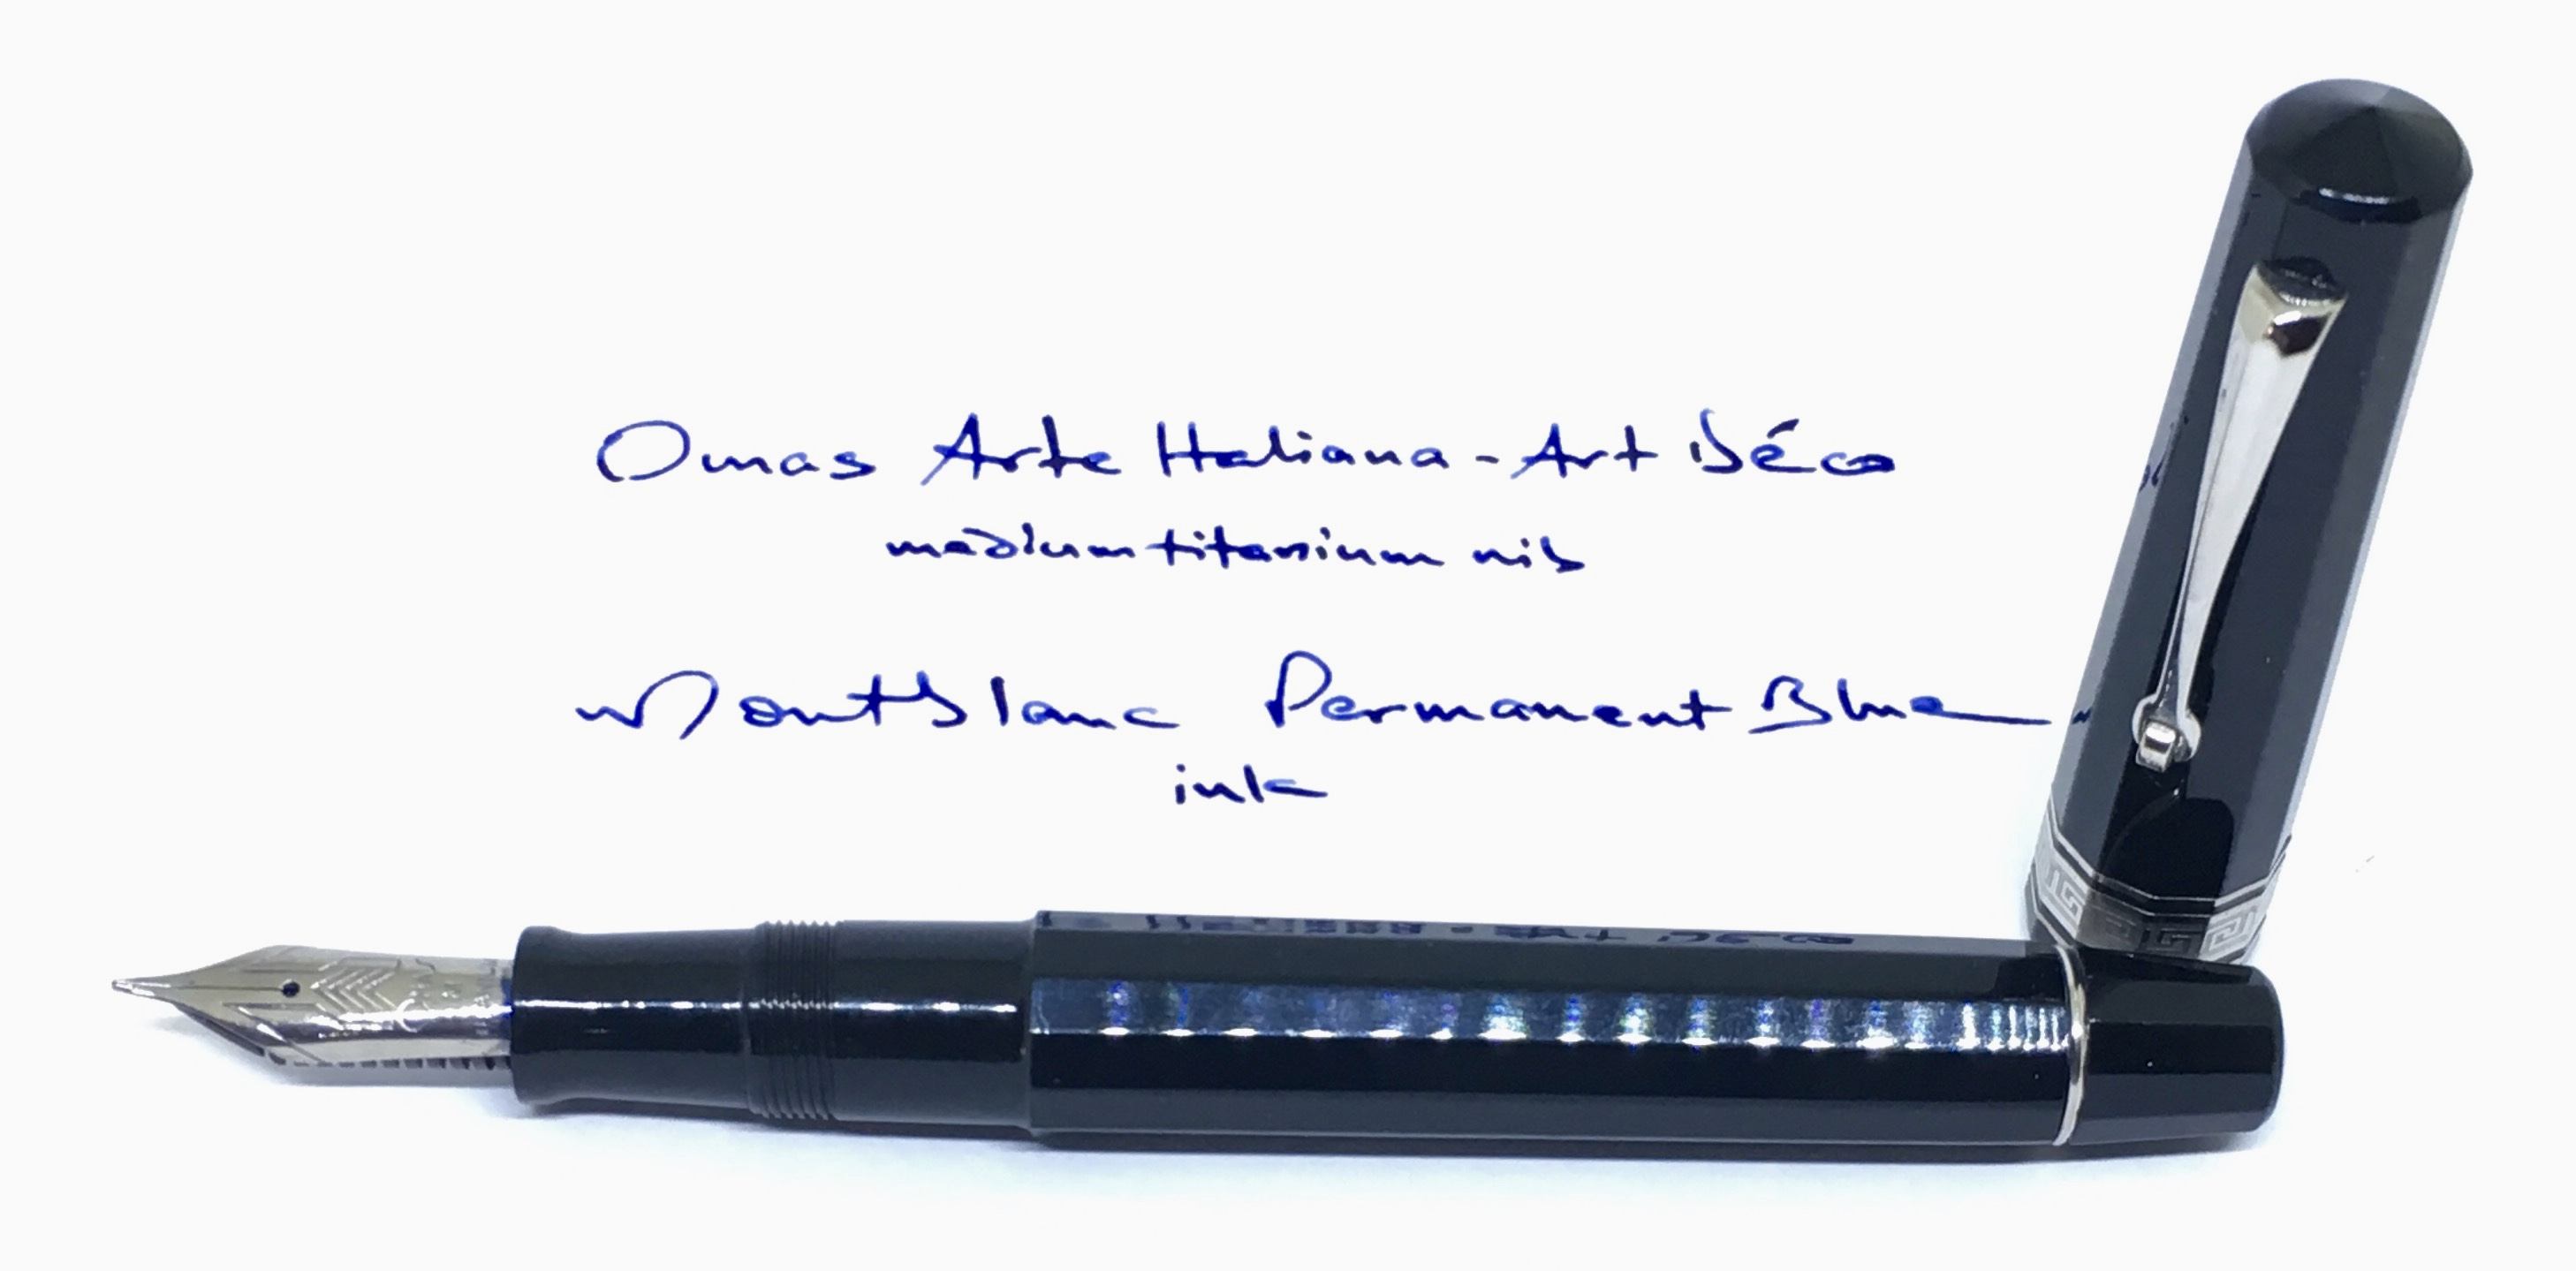 Omas Arte Italiana - Art Déco
medium titanium nib
Montblanc Permanent Blue
ink